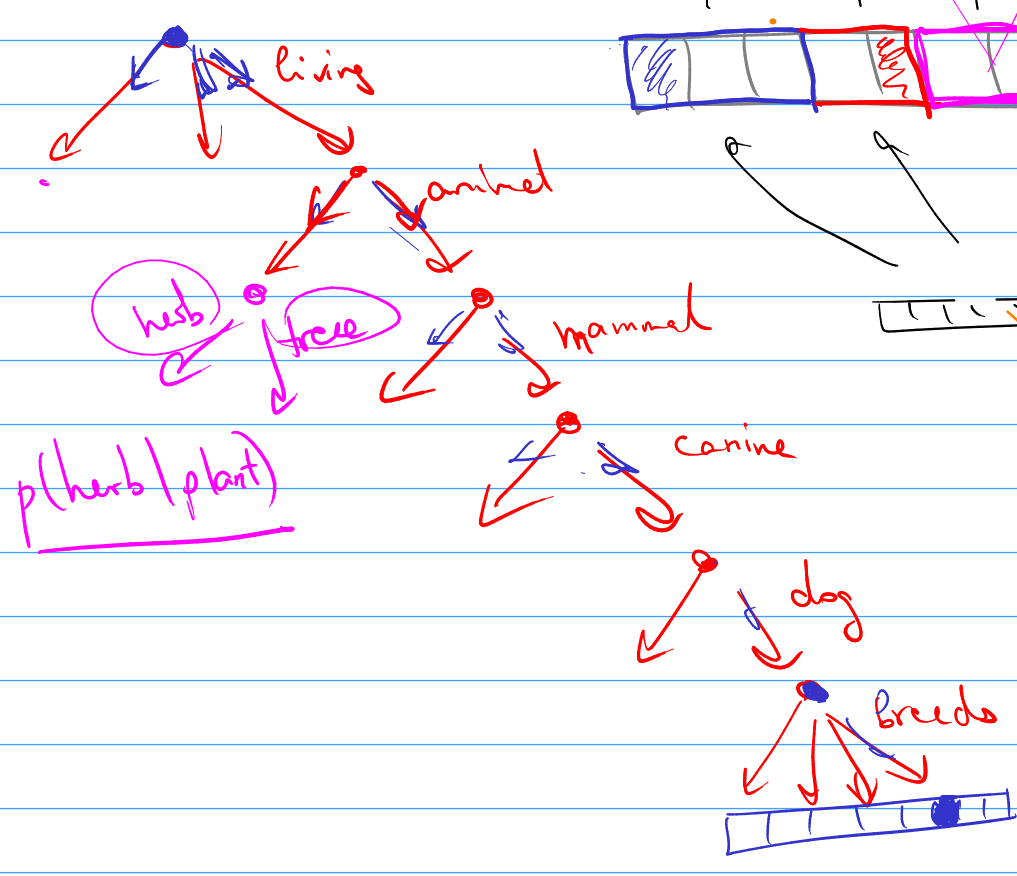 living
animal
herb tree
mammal
canine
p(herb|plant)
dog
Breeds